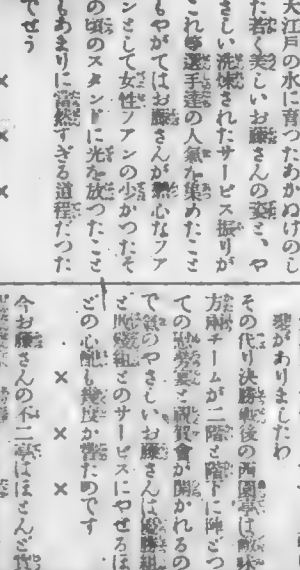 大江戸の水に育つたあかぬけのし
た若く美しいお藤さんの姿と、や
さしい洗煉されたサービス振りが
これ等選手達の人氣を集めたこと
もやがてはお藤さんが熱心なフア
ンとして女性フアンの少かつたそ
の頃のスタンドに光を放つたこと
もあまりに當然すぎる道程だつた
でせう
× × ×
がありましたわ
その代り決勝戰後の西園亭は敵味
方兩チームが二階と階下に陣どつ
ての慰勞宴と祝賀會が開かれるの
で氣のやさしいお藤さんは優勝組
と敗殘組とのサービスにやせるほ
どの心配も幾度か嘗ためです
× × ×
今お藤さんの不二亭はほとんど